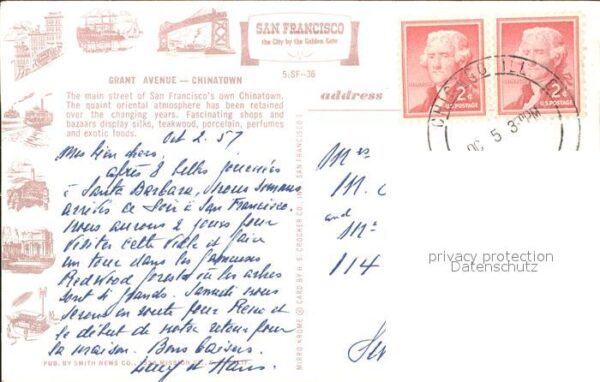 SAN FRANCISCO
the City by the Golden Gate
5-SF-36
GRANT AVENUE — CHINATOWN
The main street of San Francisco's own Chinatown.
The quaint oriental atmosphere has been retained
over the changing years. Fascinating shops and
bazaars display silks, teakwood, porcelain, perfumes
and exotic foods.
address
2¢ 2¢
U.S. POSTAGE U.S. POSTAGE
CHICAGO ILL.
5 3 PM
Oct 2. 57
Mes bien chers,
après 8 belles journées
à Santa Barbara, nous sommes
arrivés ce soir à San Francisco.
Nous aurons 2 jours pour
visiter cette ville et faire
un tour dans les fameuses
Redwood forests où les arbres
sont si grands. Samedi nous
serons en route pour Reno et
le début de notre retour pour
la maison. Bons baisers.
et Hans.
M.
and
114
MIRRO KROME ® CARD BY H. S. CROCKER CO., SAN FRANCISCO 1
PUB. BY SMITH NEWS CO.,
privacy protection
Datenschutz